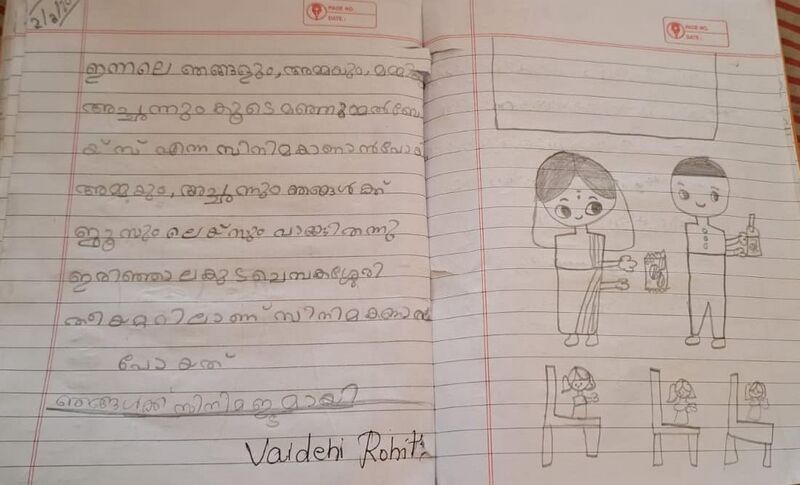 2/2/
PAGE NO.
DATE:
ഇന്നലെ ഞങ്ങളും, അമ്മയും,
അച്ഛന്നും കൂടെ മഞ്ഞുമ്മൽബോ
യ്സ് എന്ന സിനിമകാണാൻപോയി
അമ്മകും, അച്ഛന്നും ഞങ്ങൾക്ക്
ജൂസും ലെയ്സും വാങ്ങിതന്നു
ഇരിഞ്ഞാലകുട ചെമ്പകശ്ശേരി
സിനിമകണാൻ
പോയത്
ഞങ്ങൾക്ക് സിനിമ ഇഷ്ട്ടമായി
Vaidehi Rohit
PAGE NO.
DATE: